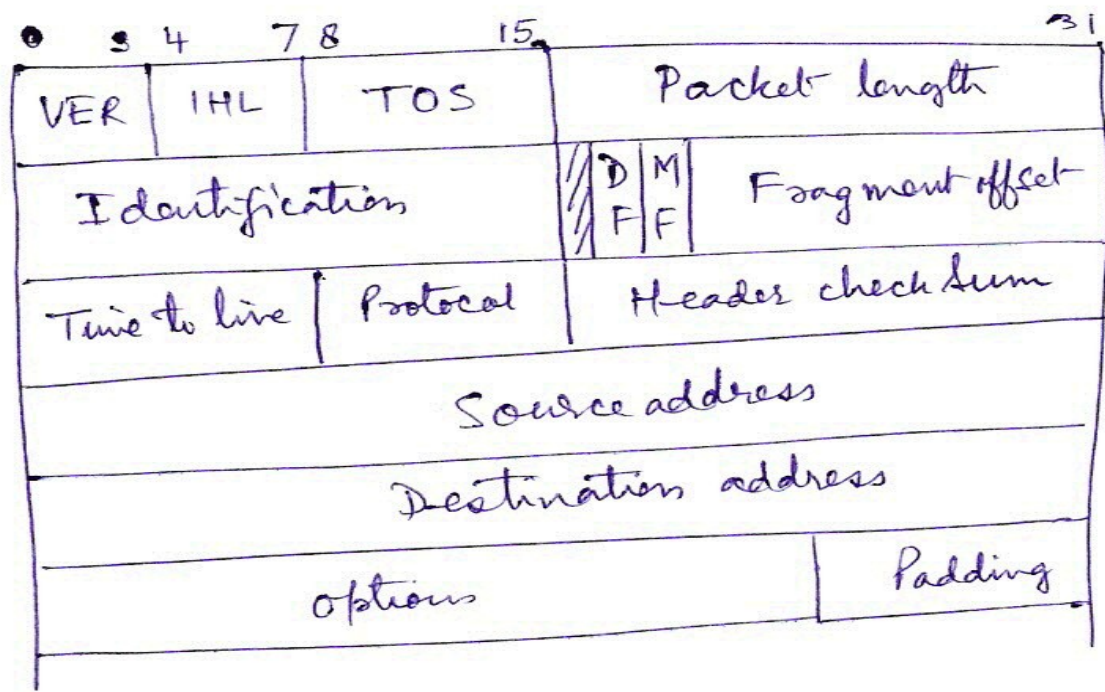 0 3 4 7 8 15 31
VER IHL TOS Packet length
Identification DF MF Fragment offset
Time to live Protocal Header check sum
Source address
Destination address
options Padding